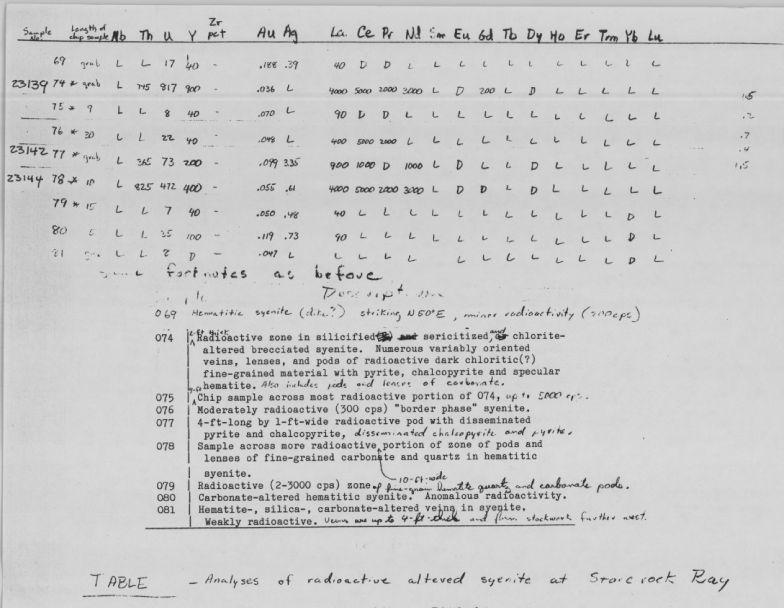 Zr
Sample No. Length of chip sample Nb Th U Y pct Au Ag La Ce Pr Nd Sm Eu Gd Tb Dy Ho Er Tm Yb Lu
69 grab L L 17 40 - .188 .39 40 D D L L L L L L L L L L L
23139 74 * grab L 745 817 900 - .036 L 4000 5000 2000 3000 L D 200 L D L L L L L 1.5
75 * 9 L L 8 40 - .070 L 90 D D L L L L L L L L L L L .2
76 * 30 L L 22 40 - .048 L 400 500 200 L L L L L L L L L L L .7
.4
23142 77 * grab L 365 73 200 - .099 3.35 900 1000 D 1000 L D L L D L L L L L 1.5
23144 78 * 10 L 825 472 400 - .055 .61 4000 5000 2000 3000 L D D L D L L L L L
79 * 15 L L 7 40 - .050 .48 40 L L L L L L L L L L L D L
80 L L 35 100 - .119 .73 90 L L L L L L L L L L L D L
81 L L 2 D - .047 L L L L L L L L L L L L L D L
footnotes as before
Description
069 Hematitic syenite (dike?) striking N50°E, minor radioactivity (200cps)
074 2-ft-thick Radioactive zone in silicified, sericitized, and chlorite-
altered brecciated syenite. Numerous variably oriented
veins, lenses, and pods of radioactive dark chloritic(?)
fine-grained material with pyrite, chalcopyrite and specular
hematite. Also includes pods and lenses of carbonate.
075 9-ft Chip sample across most radioactive portion of 074, up to 5000 cps.
076 Moderately radioactive (300 cps) "border phase" syenite.
077 4-ft-long by 1-ft-wide radioactive pod with disseminated
pyrite and chalcopyrite, disseminated chalcopyrite and pyrite.
078 Sample across more radioactive portion of zone of pods and
lenses of fine-grained carbonate and quartz in hematitic
syenite.
10-ft-wide
079 Radioactive (2-3000 cps) zone of fine-grain hematite quartz and carbonate pods.
080 Carbonate-altered hematitic syenite. Anomalous radioactivity.
081 Hematite-, silica-, carbonate-altered veins in syenite.
Weakly radioactive. Veins are up to 4-ft-thick and form stockwork further west.
TABLE - Analyses of radioactive altered syenite at Stonerock Bay